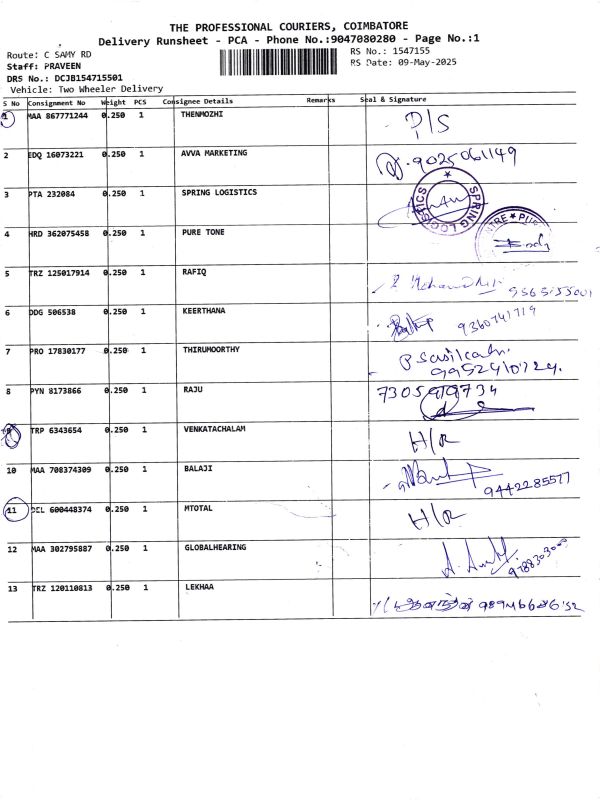 THE PROFESSIONAL COURIERS, COIMBATORE
Delivery Runsheet - PCA - Phone No.:9047080280 - Page No.:1
Route: C SAMY RD
RS No.: 1547155
Staff: PRAVEEN
RS Date: 09-May-2025
DRS No.: DCJB154715501
Vehicle: Two Wheeler Delivery
S No Consignment No Weight PCS Consignee Details Remarks Seal & Signature
1 MAA 867771244 0.250 1 THENMOZHI P/S
2 EDQ 16073221 0.250 1 AVVA MARKETING 9025061149
3 PTA 232084 0.250 1 SPRING LOGISTICS SPRING LOGISTICS
4 HRD 362075458 0.250 1 PURE TONE
5 TRZ 125017914 0.250 1 RAFIQ
6 DDG 506538 0.250 1 KEERTHANA 9360741719
7 PRO 17830177 0.250 1 THIRUMOORTHY
8 PYN 8173866 0.250 1 RAJU
9 TRP 6343654 0.250 1 VENKATACHALAM H/R
10 MAA 708374309 0.250 1 BALAJI 9442285577
11 DEL 600448374 0.250 1 MTOTAL H/R
12 MAA 302795887 0.250 1 GLOBALHEARING
13 TRZ 120110813 0.250 1 LEKHAA